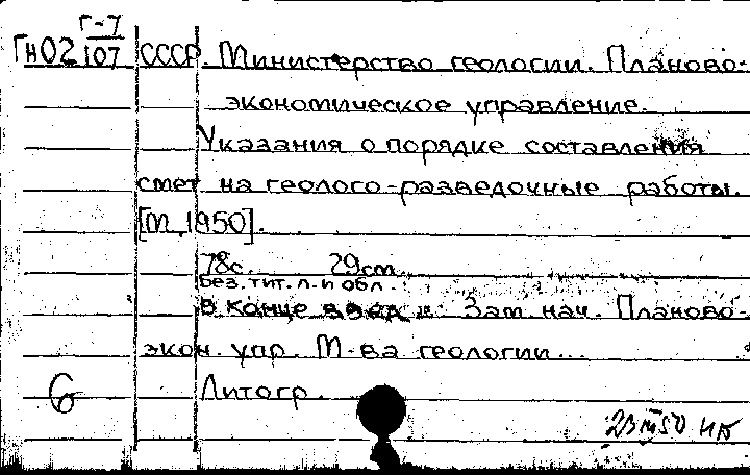 Г-7
Гн02 107 СССР. Министерство геологии. Планово-
экономическое управление.
Указания о порядке составления
смет на геолого-разведочные работы.
[М., 1950].
78с. 29см.
Без. тит. л. и обл.
В конце : Зам. нач. Планово-
экон. упр. М-ва геологии...
6 Литогр.